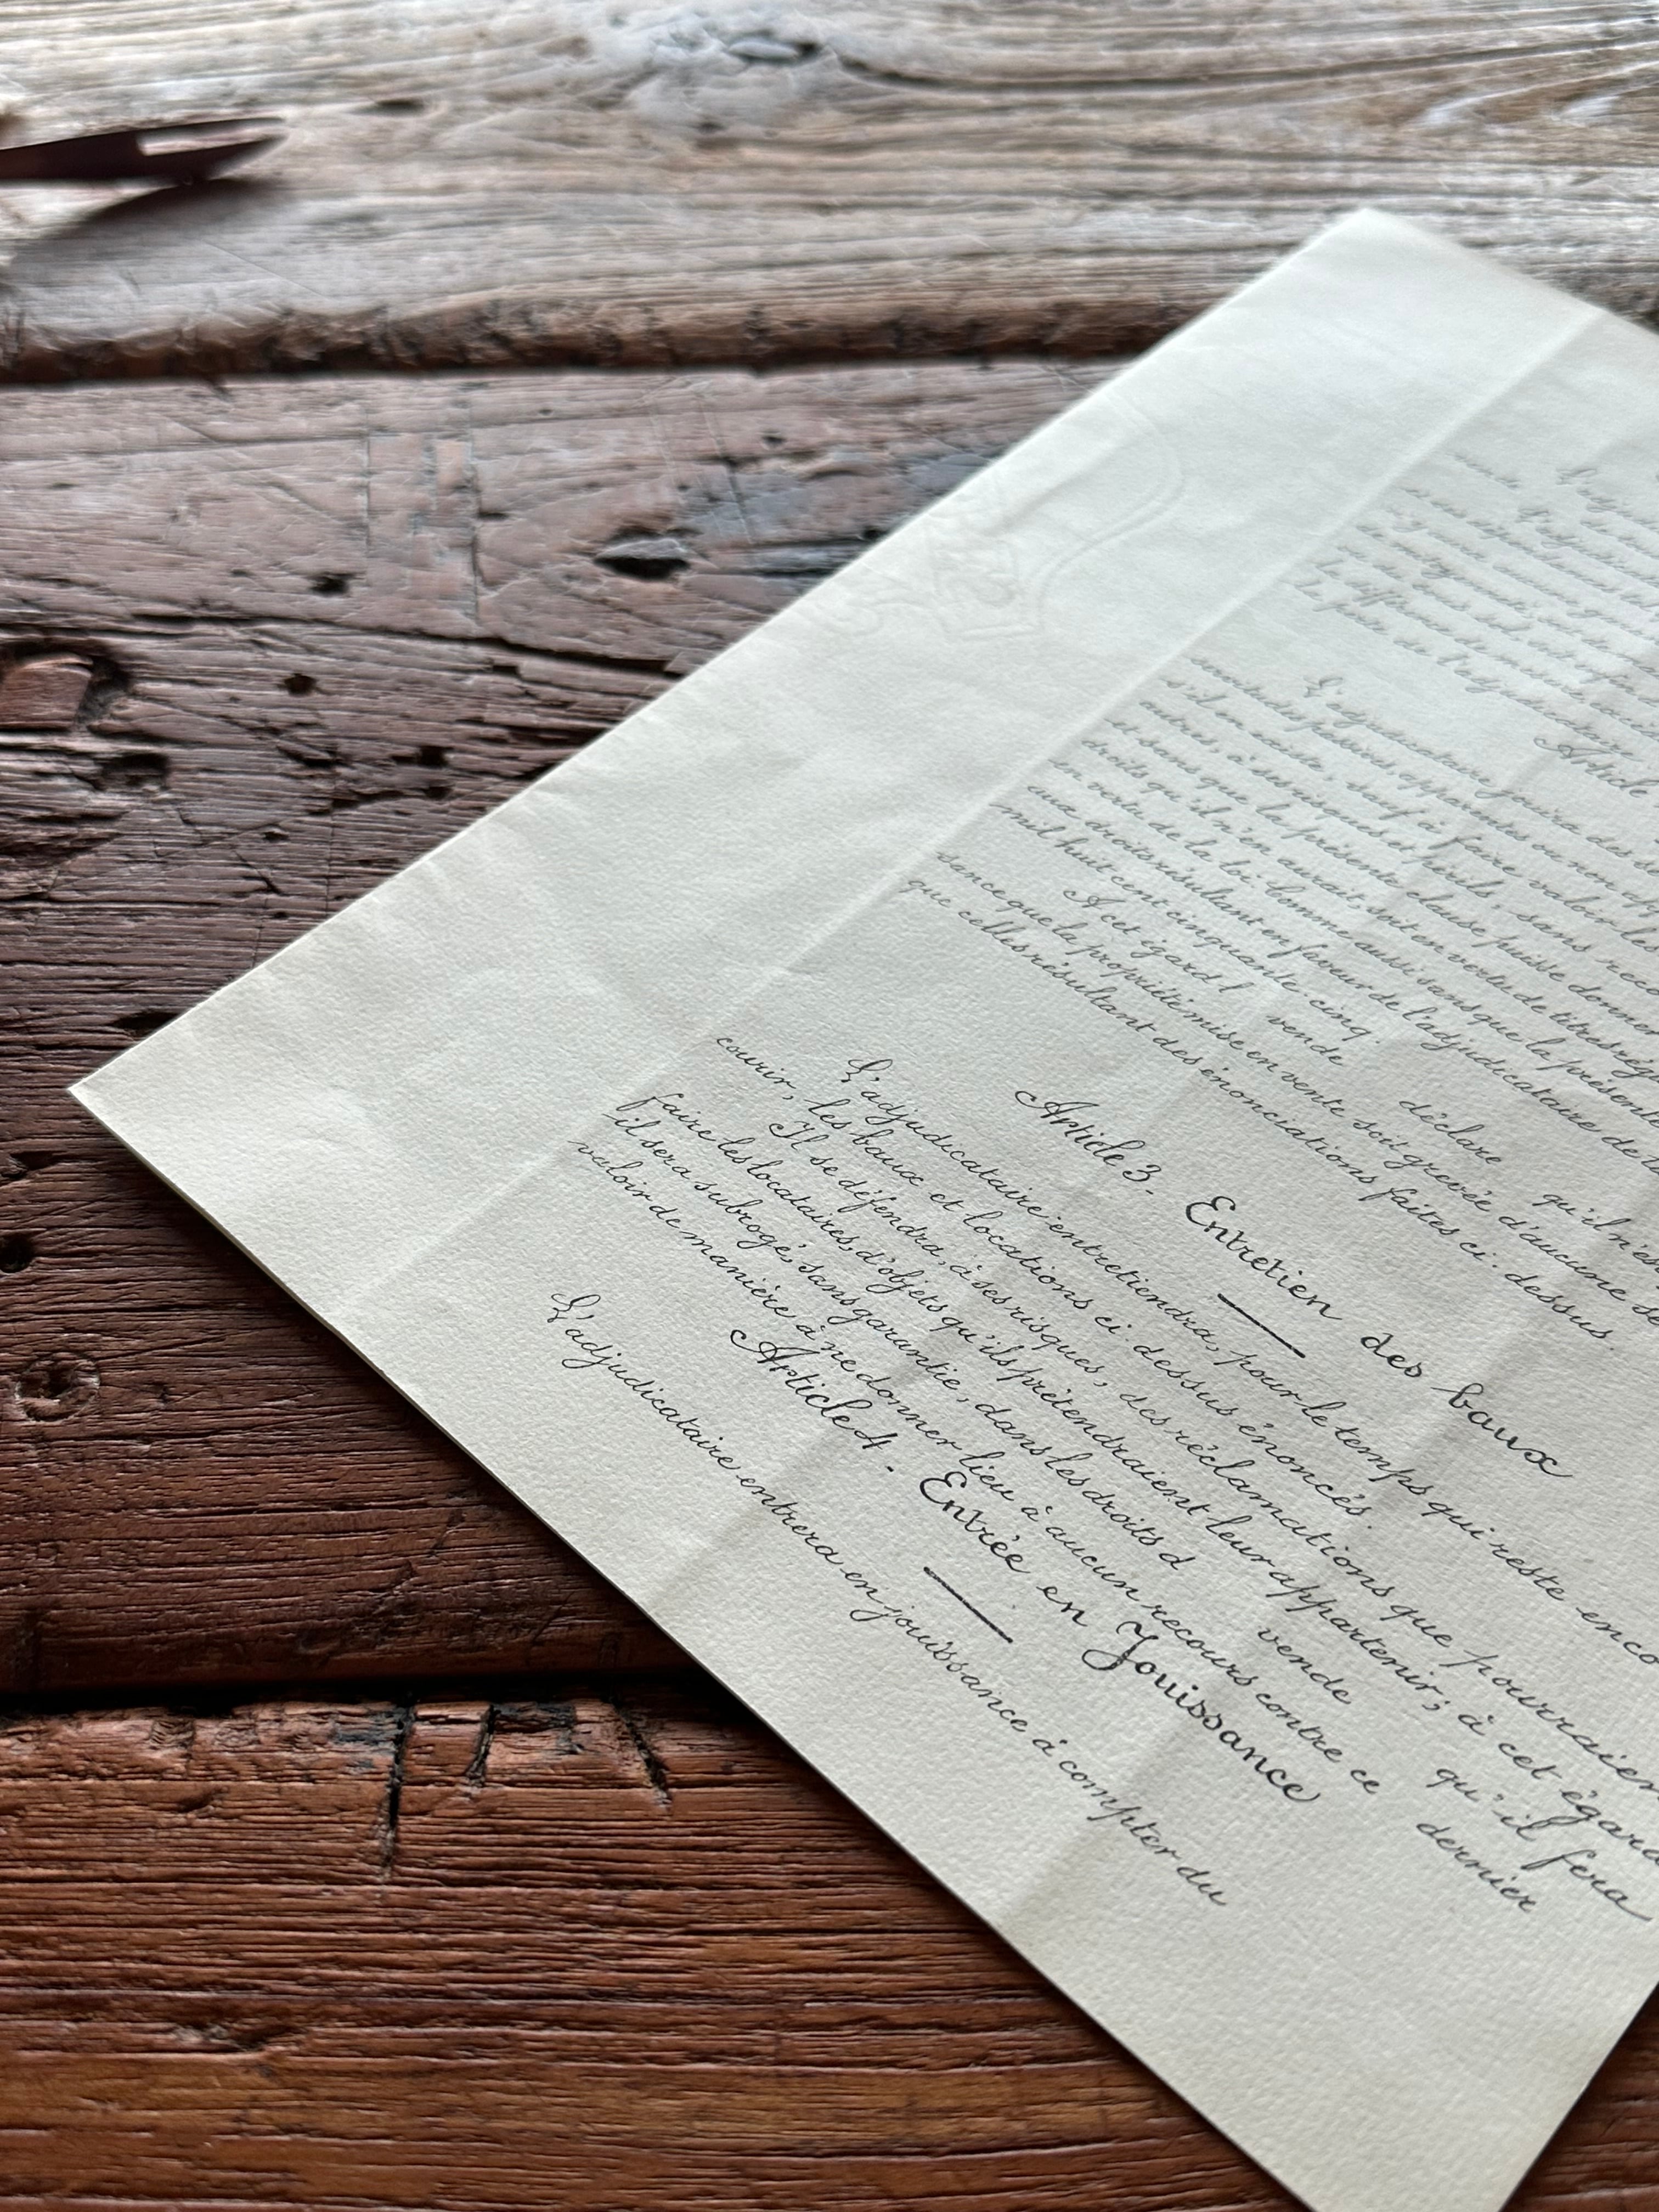 L'adj
Article
L'adjudicataire jouira des se
ventes passives, apparentes ou non app
s'il en existe, sauf à faire valoir les
autres, à ses risques et périls, sans reco
et sans que la présente clause puisse donner
droits qu'il n'en aurait, soit en vertu de titres régu
en vertu de la loi comme aussi sans que la présente
aux droits résultant en faveur de l'adjudicataire de la
mil huit cent cinquante-cinq.
A cet égard l vende déclare qu'il n'est
sance que la propriété mise en vente soit grevée d'aucune se
que celles résultant des énonciations faites ci-dessus.
Article 3- Entretien des baux
L'adjudicataire entretiendra, pour le temps qui reste enco
courir, les baux et locations ci-dessus énoncés.
Il se défendra, à ses risques, des réclamations que pourraien
faire les locataires, d'objets qu'ils prétendraient leur appartenir; à cet égard
il sera subrogé, sans garantie, dans les droits d vende qu'il fera
valoir de manière à ne donner lieu à aucun recours contre ce dernier
Article 4- Entrée en Jouissance
L'adjudicataire entrera en jouissance à compter du